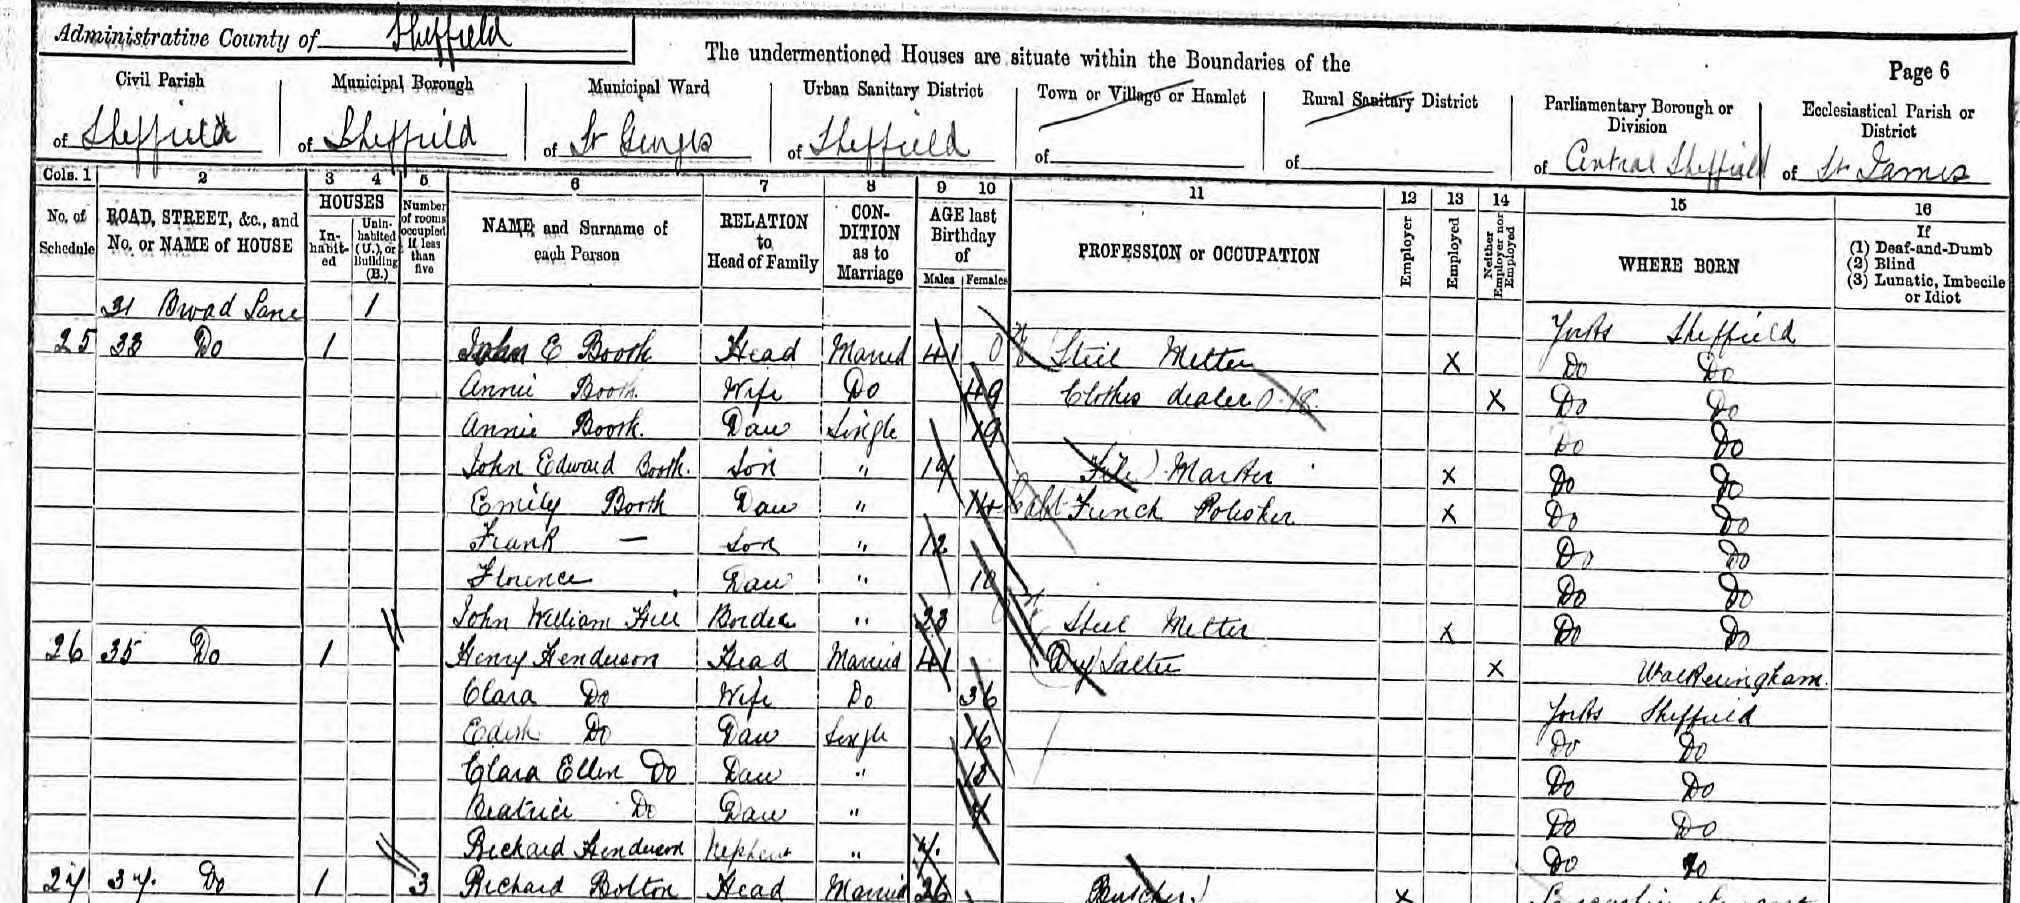 Administrative County of Sheffield
The undermentioned Houses are situate within the Boundaries of the
Page 6
Civil Parish of Sheffield
Municipal Borough of Sheffield
Municipal Ward of St Georges
Urban Sanitary District of Sheffield
Town or Village or Hamlet of
Rural Sanitary District of
Parliamentary Borough or Division of Central Sheffield
Ecclesiastical Parish or District of St James
Cols. 1 2 3 4 5 6 7 8 9 10 11 12 13 14 15 16
No. of Schedule
ROAD, STREET, &c., and No. or NAME of HOUSE
HOUSES
In-habit-ed
Unin-habited (U.), or Building (B.)
Number of rooms occupied if less than five
NAME and Surname of each Person
RELATION to Head of Family
CON-DITION as to Marriage
AGE last Birthday of
Males Females
PROFESSION or OCCUPATION
Employer
Employed
Neither Employer nor Employed
WHERE BORN
If
(1) Deaf-and-Dumb
(2) Blind
(3) Lunatic, Imbecile or Idiot
31 Broad Lane 1
25 33 Do 1 John E Booth Head Married 41 Steel Melter X Yorks Sheffield
Annie Booth Wife Do 49 Clothes dealer X Do Do
Annie Booth Daur Single 19 Do Do
John Edward Booth Son " 17 File Marker X Do Do
Emily Booth Daur " 14 French Polisher X Do Do
Frank — Son " 12 Do Do
Florence Daur " 10 Do Do
John William Hill Border " 23 Steel Melter X Do Do
26 35 Do 1 Henry Henderson Head Married 41 Dry Salter X Walkeringham
Clara Do Wife Do 36 Yorks Sheffield
Edith Do Daur Single 16 Do Do
Clara Ellen Do Daur " Do Do
Beatrice Do Daur " 4 Do Do
Richard Henderson Nephew " Do Do
27 37 Do 1 3 Richard Bolton Head Married 26 Butcher X